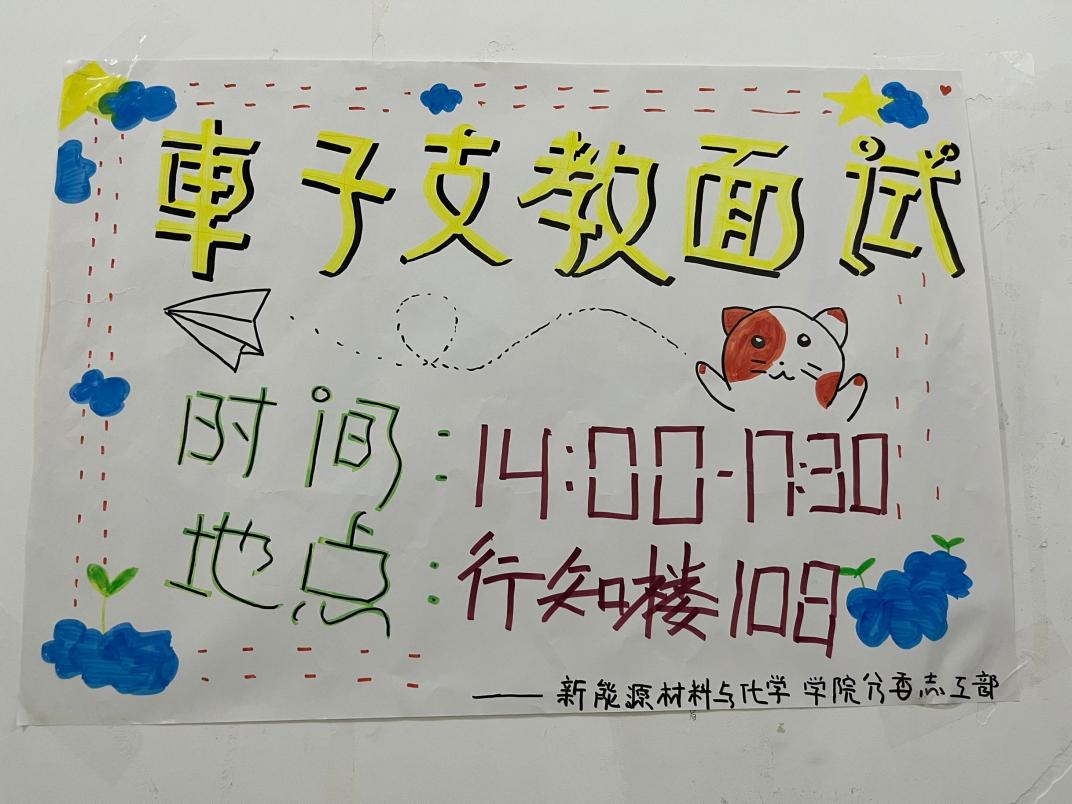 車子支教面试
时间:14:00-17:30
地点:行知楼108
——新能源材料与化学学院分委志工部